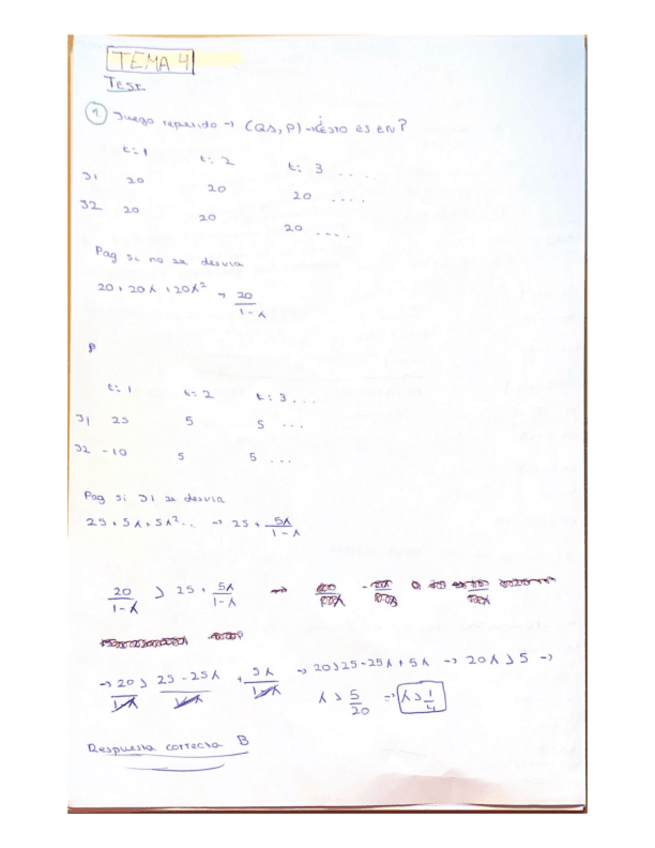 TEMA 4
Test
1. Juego repetido → (QS, P) → ¿esto es EN?
t=1 t=2 t=3 ....
J1 20 20 20 ....
J2 20 20 20 ....
Pag si no se desvia
20 + 20λ + 20λ² → 20/(1-λ)
P
t=1 t=2 t=3 ...
J1 25 5 5 ...
J2 -10 5 5 ...
Pag si J1 se desvia
25 + 5λ + 5λ² .. → 25 + 5λ/(1-λ)
20/(1-λ) > 25 + 5λ/(1-λ) →
→ 20/(1-λ) > (25-25λ)/(1-λ) + 5λ/(1-λ) → 20>25-25λ+5λ → 20λ>5 →
λ > 5/20 → λ>1/4
Respuesta correcta B